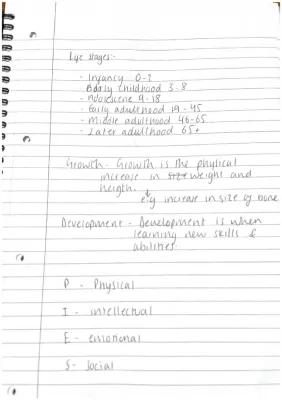 Life stages:-
- Infancy 0-2
- Early childhood 3-8
- Adolescence 9-18
- Early adulthood 19-45
- Middle adulthood 46-65
- Later adulthood 65+
Growth - Growth is the physical
increase in size weight and
heigth.
↳ e.g increase in size of bone
Development - Development is when
learning new skills &
abilities
P - Physical
I - intellectual
E - emotional
S - Social